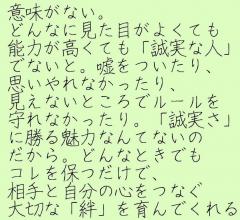 意味がない。
どんなに見た目がよくても
能力が高くても「誠実な人」
でないと。嘘をついたり、
思いやれなかったり、
見えないところでルールを
守れなかったり。「誠実さ」
に勝る魅力なんてないの
だから。どんなときでも
コレを保つだけで、
相手と自分の心をつなぐ
大切な「絆」を育んでくれる